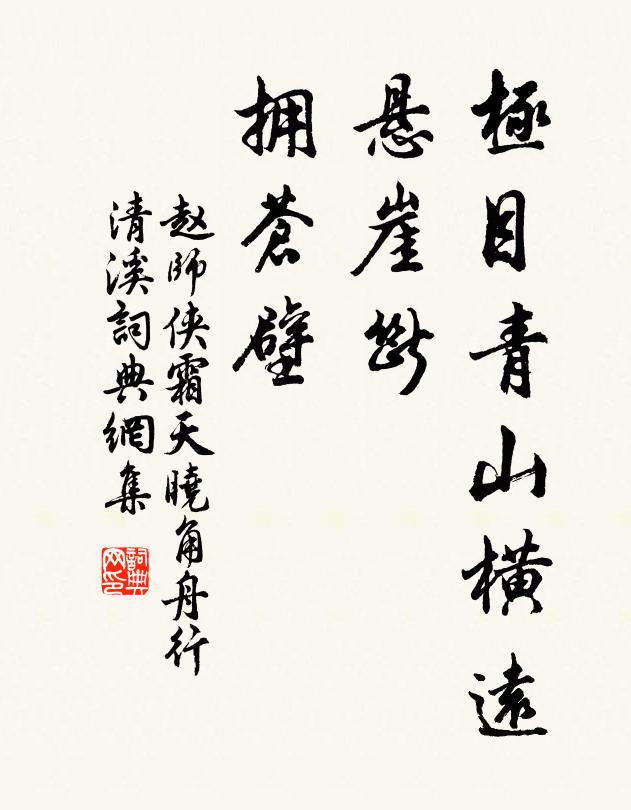 極目青山橫遠
悬崖斷
拥蒼壁
赵師侠霜天曉角舟行
清溪詞典網集
詞典網印